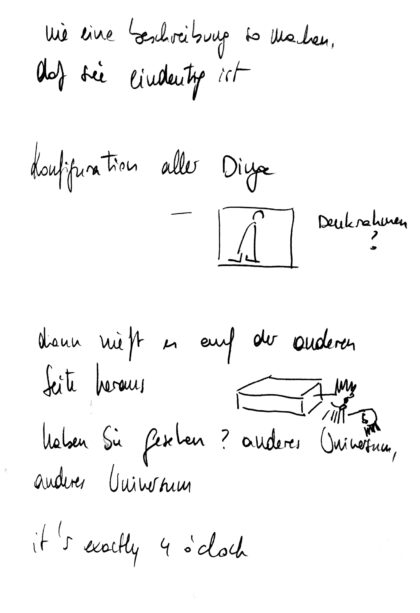 wie eine Beschreibung so machen,
daß sie eindeutig ist
Konfiguration aller Dinge
—
Denkrahmen
?
dann nießt er auf der anderen
Seite heraus
haben Sie gesehen? anderes Universum,
anderes Universum
it's exactly 4 o'clock